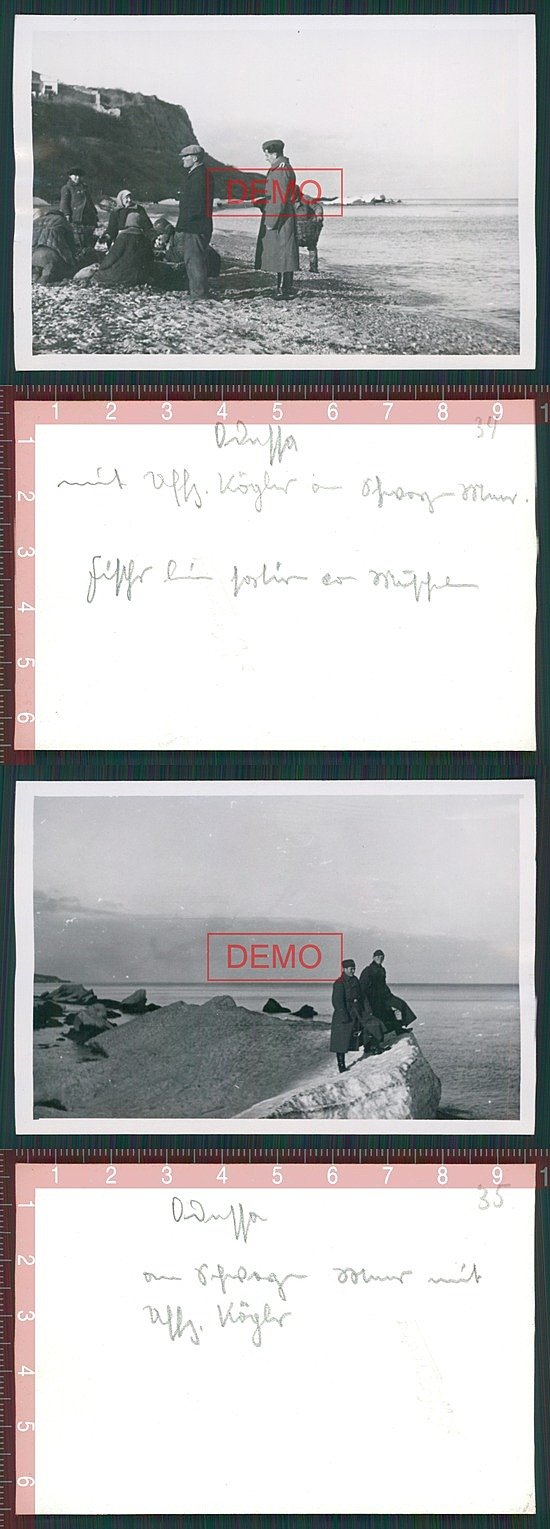 DEMO
1 2 3 4 5 6 7 8 9
Odessa 39
mit Uffz. Kögler am Schwarzen Meer.
Fischer beim sortieren von Muscheln
1
2
3
4
5
6
DEMO
1 2 3 4 5 6 7 8 9
Odessa 35
am Schwarzen Meer mit
Uffz. Kögler
1
2
3
4
5
6